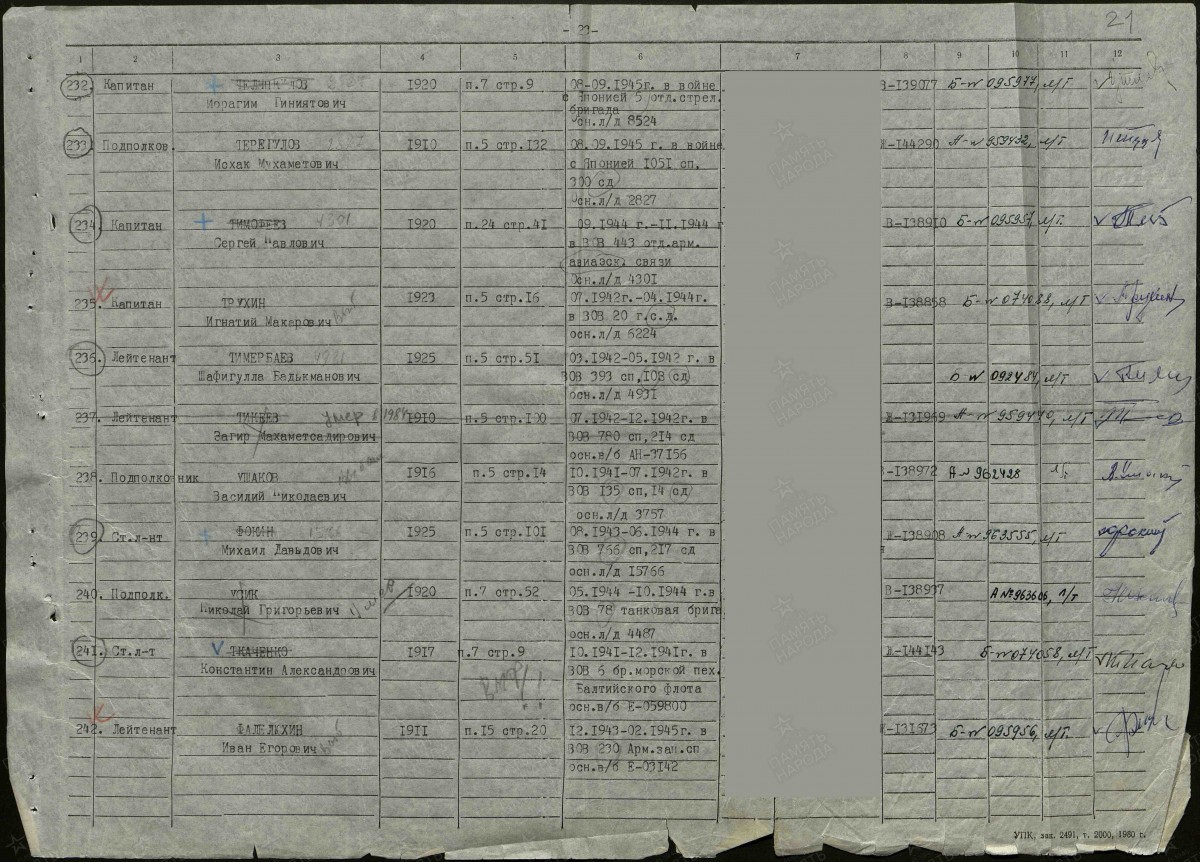 21
- 23-
1 2 3 4 5 6 7 8 9 10 11 12
232. Капитан 1920 п.7 стр.9 08-09.1945г. в войне В-139077 Б-№ 095977, м/Т
Ибрагим Гиниятович с Японией 5 отд.стрел.
бригада
осн.л/д 8524
233. Подполков. ТЕРЕГУЛОВ 1910 п.5 стр.132 08.09.1945 г. в войне Ж-144290 А-№ 959432, м/Т
Исхак Мухаметович с Японией 1051 сп,
300 сд
осн.л/д 2827
234. Капитан ТИМОФЕЕВ 4301 1920 п.24 стр.41 09.1944 г.-11.1944 г В-138910 Б-№ 095957, м/Т.
Сергей Павлович в ВОВ 443 отд.арм.
авиаэск. связи
осн.л/д 4301
235. Капитан ТРУХИН 1923 п.5 стр.16 07.1942г.-04.1944г. В-138858 Б-№ 074088, м/Т
Игнатий Макарович в ВОВ 20 г.с.д.
осн.л/д 6224
236. Лейтенант ТИМЕРБАЕВ 4931 1925 п.5 стр.51 03.1942-05.1942 г. в
Шафигулла Бадыкманович ВОВ 393 сп,108 сд Б-№ 092484, м/Т
осн.л/д 4931
237. Лейтенант ТИКЕЕВ умер в 1984 1910 п.5 стр.100 07.1942-12.1942г. в Ж-131969 А-№ 959470, м/Т
Загир Махаметсадирович ВОВ 780 сп,214 сд
осн.в/б АН-37156
238. Подполковник УШАКОВ 1916 п.5 стр.14 10.1941-07.1942г. в В-138972 А № 962428
Василий Николаевич ВОВ 135 сп,14 сд
осн.л/д 3757
239. Ст.л-нт ФОКИН 15766 1925 п.5 стр.101 08.1943-06.1944 г. в Ж-138908 А-№ 963555, м/Т
Михаил Давыдович ВОВ 766 сп,217 сд
осн.л/д 15766
240. Подполк. УСИК 1920 п.7 стр.52 05.1944 -10.1944 г.в В-138937 А №963606, л/Т
Николай Григорьевич ВОВ 78 танковая брига
осн.л/д 4487
241. Ст.л-т ТКАЧЕНКО 1917 п.7 стр.9 10.1941-12.1941г. в Ж-144143 Б-№ 074058, м/Т
Константин Александрович ВОВ 6 бр.морской пех.
ВМФ! Балтийского флота
осн.в/б Е-059800
242. Лейтенант ФАЛЕЛЮХИН 1911 п.15 стр.20 12.1943-02.1945г. в Ж-131573 Б-№ 095956, м/Т.
Иван Егорович ВОВ 230 Арм.зап.сп
осн.в/б Е-03142
УПК, зак. 2491, т. 2000, 1980 г.